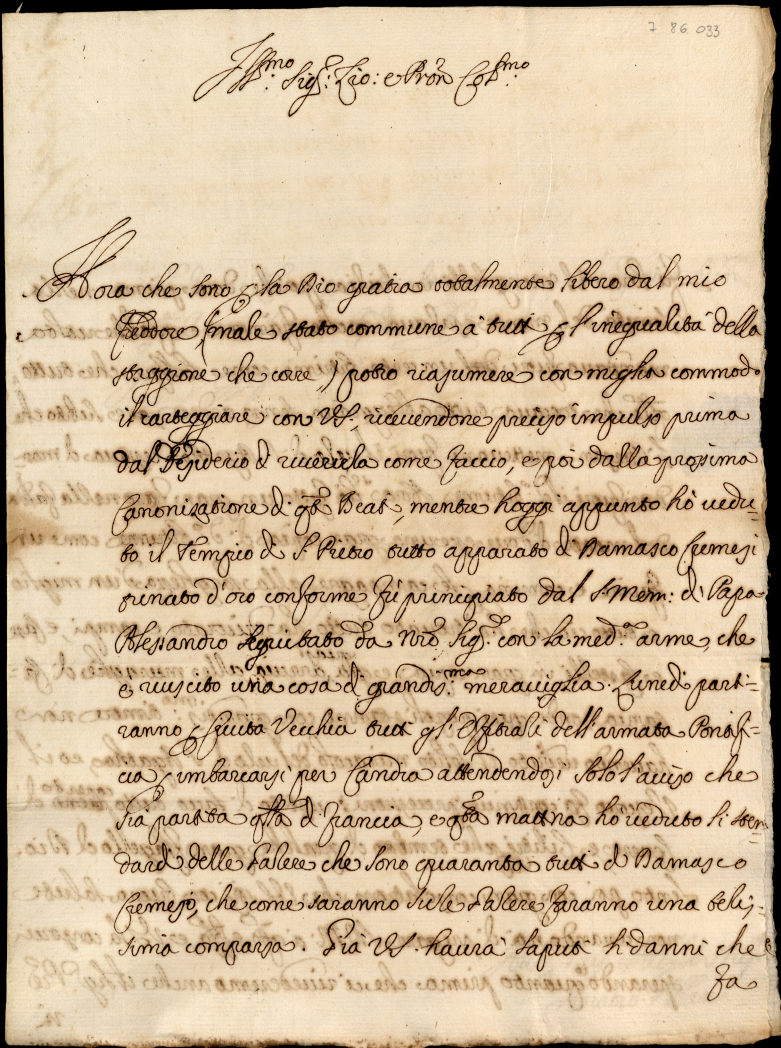 7 86 033
Ill.mo Sig.r Zio: e Pron Col.mo
Hora che sono p la Dio gratia totalmente libero dal mio
freddore (male stato commune à tutti p l'inegualità della
staggione che corre) potrò riasumere con miglior commodo
il carteggiare con VS., ricevendone preciso impulso prima
dal desiderio di riverirla come faccio, e poi dalla prossima
Canonizatione di qti Beati, mentre hoggi appunto hò vedu-
to il Tempio di S. Pietro tutto apparato di Damasco Cremesi
trinato d'oro conforme fù principiato dal S. Mem: di Papa
Alessandro seguitato da Nro Sig.re con la med.a arme, che
è riuscito una cosa di grandis.ma meraviglia. Lunedi parti=
ranno p Civita Vecchia tutti gl'Offitiali dell'armata Pontif=
cia p imbarcarsi per Candia attendendosi solo l'aviso che
sia partita qlla di Francia, e qta mattina hò veduto li sten=
dardi delle Galere che sono quaranta tutti di Damasco
Cremesi, che come saranno sù le Galere faranno una belis=
sima comparsa. Già VS. haurà saputi li danni che
fa